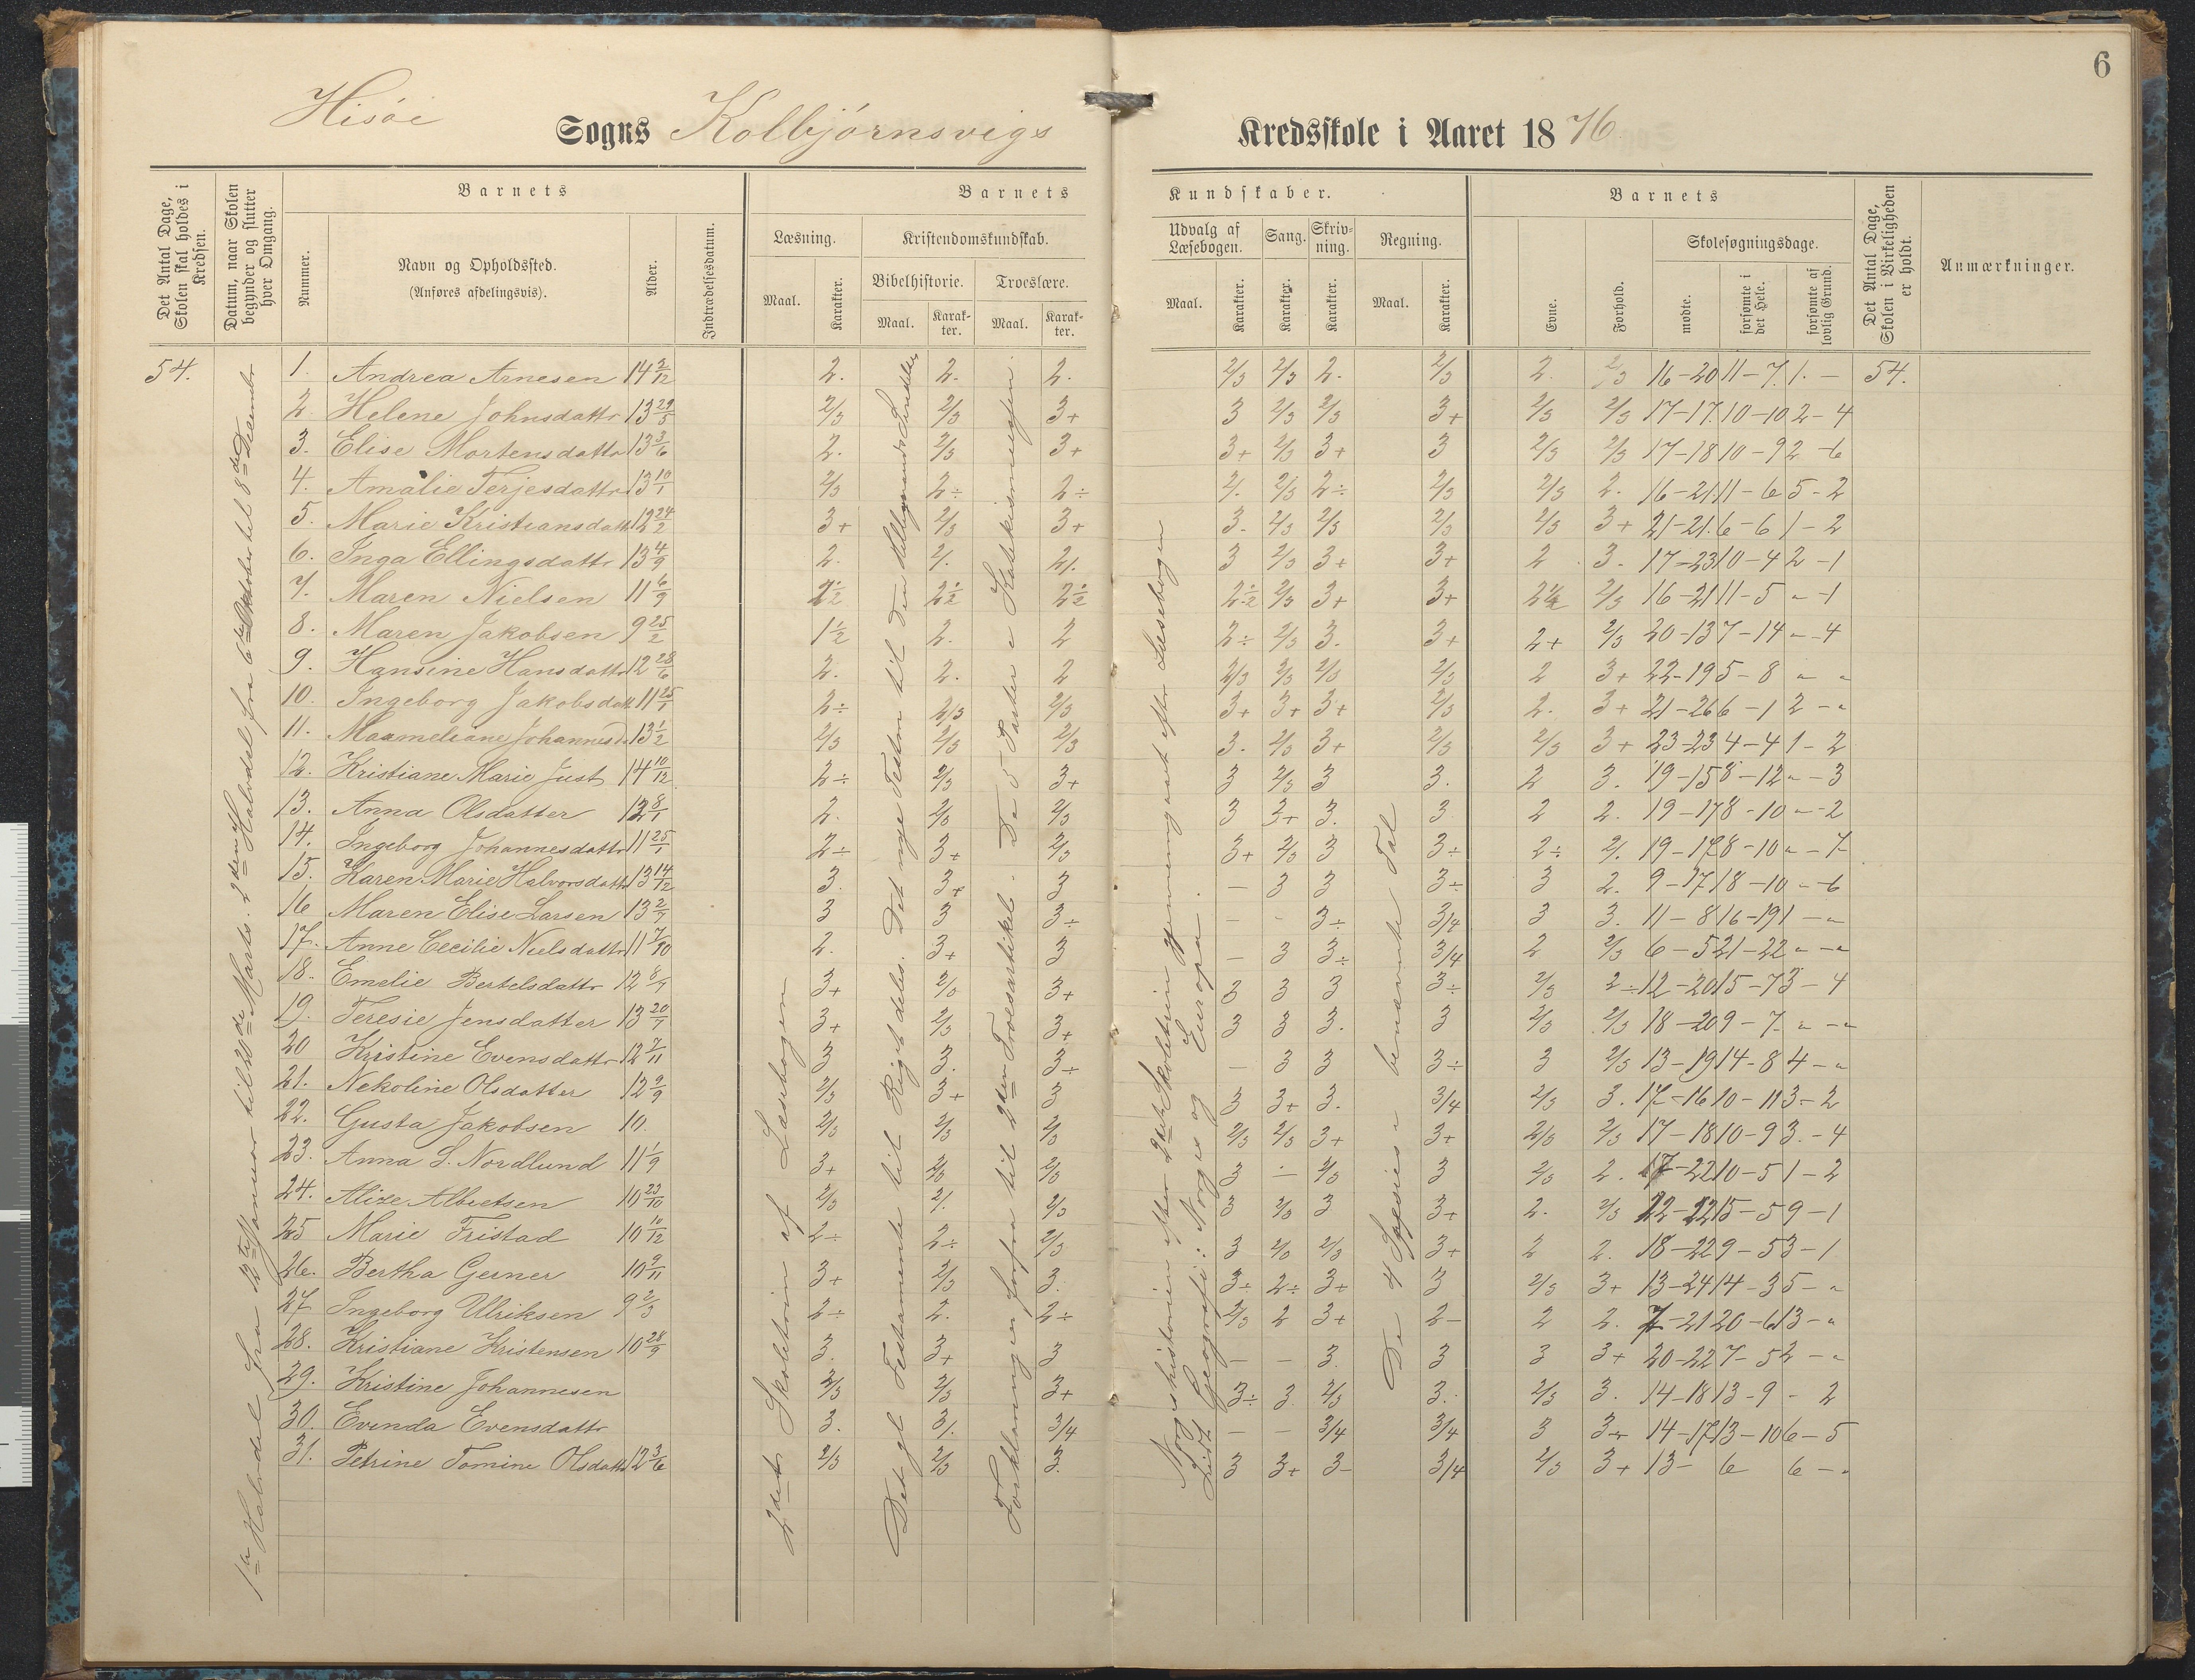 6
Hisøi Sogns Kolbjørnsvigs Kredsskole i Aaret 1876
Det Antal Dage, Skolen skal holdes i Kredsen.
Datum, naar Skolen begynder og slutter hver Omgang.
Barnets
Nummer.
Navn og Opholdssted.
(Anføres afdelingsvis).
Alder.
Indtrædelsesdatum.
Barnets Kundskaber.
Læsning.
Maal.
Karakter.
Kristendomskundskab.
Bibelhistorie.
Maal.
Karakter.
Troeslære.
Maal.
Karakter.
Udvalg af Læsebogen.
Maal.
Karakter.
Sang.
Karakter.
Skrivning.
Karakter.
Regning.
Maal.
Karakter.
Barnets
Evne.
Forhold.
Skolesøgningsdage.
mødte.
forsømte i det Hele.
forsømte af lovlig Grund.
Det Antal Dage, Skolen i Virkeligheden er holdt.
Anmærkninger.
54.
1ste Halvdel fra 12te Januar til 20de Marts. 2den Halvdel fra 6te Oktober til 8de Decembr
2det Skoletrin af Læsebogen
Det gl Testamente til Rigets deles. Det nye Testm til den
Forklaringen forfra til 2den Troesartikel. De 5 Parter i Katekismusen
Norgeshistorien efter 2det Skoletrin gjennemgaaet efter Læsebogen
Lidt Geografi: Norge og Europa.
De 4 Species i benævnte Tal
1. Andrea Arnesen 14 2/12 2. 2. 2. 2/3 2/3 2. 2/3 2. 2/3 16-20 11-7. 1.- 54.
2. Helene Johnsdattr 13 29/5 2/3 2/3 3+ 3 2/3 2/3 3+ 2/3 2/3 17-17. 10-10 2-4
3. Elise Mortensdattr 13 3/6 2. 2/3 3+ 3+ 2/3 3+ 3 2/3 2/3 17-18 10-9 2-6
4. Amalie Terjesdattr 13 10/1 2/3 2÷ 2÷ 2/. 2/3 2÷ 2/3 2/3 2. 16-21. 11-6 5-2
5. Marie Kristiansdatt 12 24/2 3+ 2/3 3+ 3. 2/3 2/3 2/3 2/3 3+ 21-21. 6-6 1-2
6. Inga Ellingsdattr 13 4/9 2. 2/. 2/. 3 2/3 3+ 3+ 2 3. 17-23 10-4 2-1
7. Maren Nielsen 11 6/9 2 1/2 2 1/2 2 1/2 2/3 3+ 3+ 2/3 16-21 11-5 "-1
8. Maren Jakobsen 9 25/2 1 1/2 2. 2 2÷ 2/3 3. 3+ 2+ 2/3 20-13 7-14 "-4
9. Hansine Hansdattr 12 28/6 2. 2. 2 2/3 2/3 2/3 2/3 2 3+ 22-19 5-8 " "
10. Ingeborg Jakobsdatt 11 25/1 2÷ 2/3 2/3 3+ 3+ 3+ 2/3 2. 3+ 21-26 6-1 2-"
11. Johannesd. 13 1/2 2/3 2/3 2/3 3. 2/3 3+ 2/3 2/3 3+ 23-23 4-4 1-2
12. Kristiane Marie Just 14 10/12 2÷ 2/3 3+ 3 2/3 3 3. 2 3. 19-15 8-12 "-3
13. Anna Olsdatter 12 8/1 2. 2/3 2/3 3 3+ 3. 3 2 2. 19-17 8-10 "-2
14. Ingeborg Johannesdattr 11 25/1 2÷ 3+ 2/3 3+ 2/3 3 3÷ 2÷ 2/. 19-17 8-10 "-7
15. Karen Marie Halvorsdattr 13 14/12 3. 3+ 3 - 3 3 3÷ 3 2. 9-17 18-10 "-6
16 Maren Elise Larsen 13 2/7 3 3 3÷ - - 3÷ 3/4 3 3. 11-8 16-19 1-"
17. Anne Cecilie Nielsdattr 11 7/10 2. 3+ 3 - 3 3÷ 3/4 2 2/3 6-5 21-22 "-"
18. Emelie Bertelsdattr 12 8/7 3+ 2/3 3+ 3 3 3 3÷ 2/3 2÷ 12-20 15-7 3-4
19. Teresie Jensdatter 13 20/7 3+ 2/3 3+ 3 3 3. 3 2/3 2/3 18-20 9-7. "-"
20 Kristine Evensdattr 12 7/11 3 3. 3÷ - 3 3 3÷ 3 2/3 13-19 14-8 4-"
21. Nekoline Olsdatter 12 9/9 2/3 3+ 3 3 3+ 3. 3/4 2/3 3. 17-16 10-11 3-2
22. Gusta Jakobsen 10. 2/3 2/3 2/3 2/3 2/3 3+ 3+ 2/3 2/3 17-18 10-9 3.-4
23. Anna S. Nordlund 11 1/9 3+ 2/3 2/3 3 - 2/3 3 2/3 2. 17-22 10-5 1-2
24. Alise Albertsen 10 23/10 2/3 2/. 2/3 3 2/3 3 3+ 2. 2/3 22-22 15-5 9-1
25 Marie Fristad 10 10/12 2÷ 2÷ 2/3 3 2/3 2/3 3+ 2 2. 18-22 9-5 3-1
26. Bertha Gerner 10 9/11 3+ 2/3 3. 3÷ 2÷ 3+ 3 2/3 3+ 13-24 14-3 5-"
27 Ingeborg Ulriksen 9 2/3 2÷ 2. 2÷ 2/3 2 3+ 2- 2 2. 7-21 20-6 13-"
28. Kristiane Kristensen 10 28/9 3. 3+ 3 - - 3. 3 3 3+ 20-22 7-5 2-"
29. Kristine Johannesen 2/3 2/3 3+ 3÷ 3. 2/3 3. 2/3 3. 14-18 13-9 - 2
30. Evinda Evensdattr 3. 3/. 3/4 - - 3/4 3/4 3 3÷ 14-17 13-10 6-5
31. Petrine Tomine Olsdattr 12 3/6 2/3 2/3 3. 3 3+ 3- 3/4 2/3 3+ 13- 6 6-"